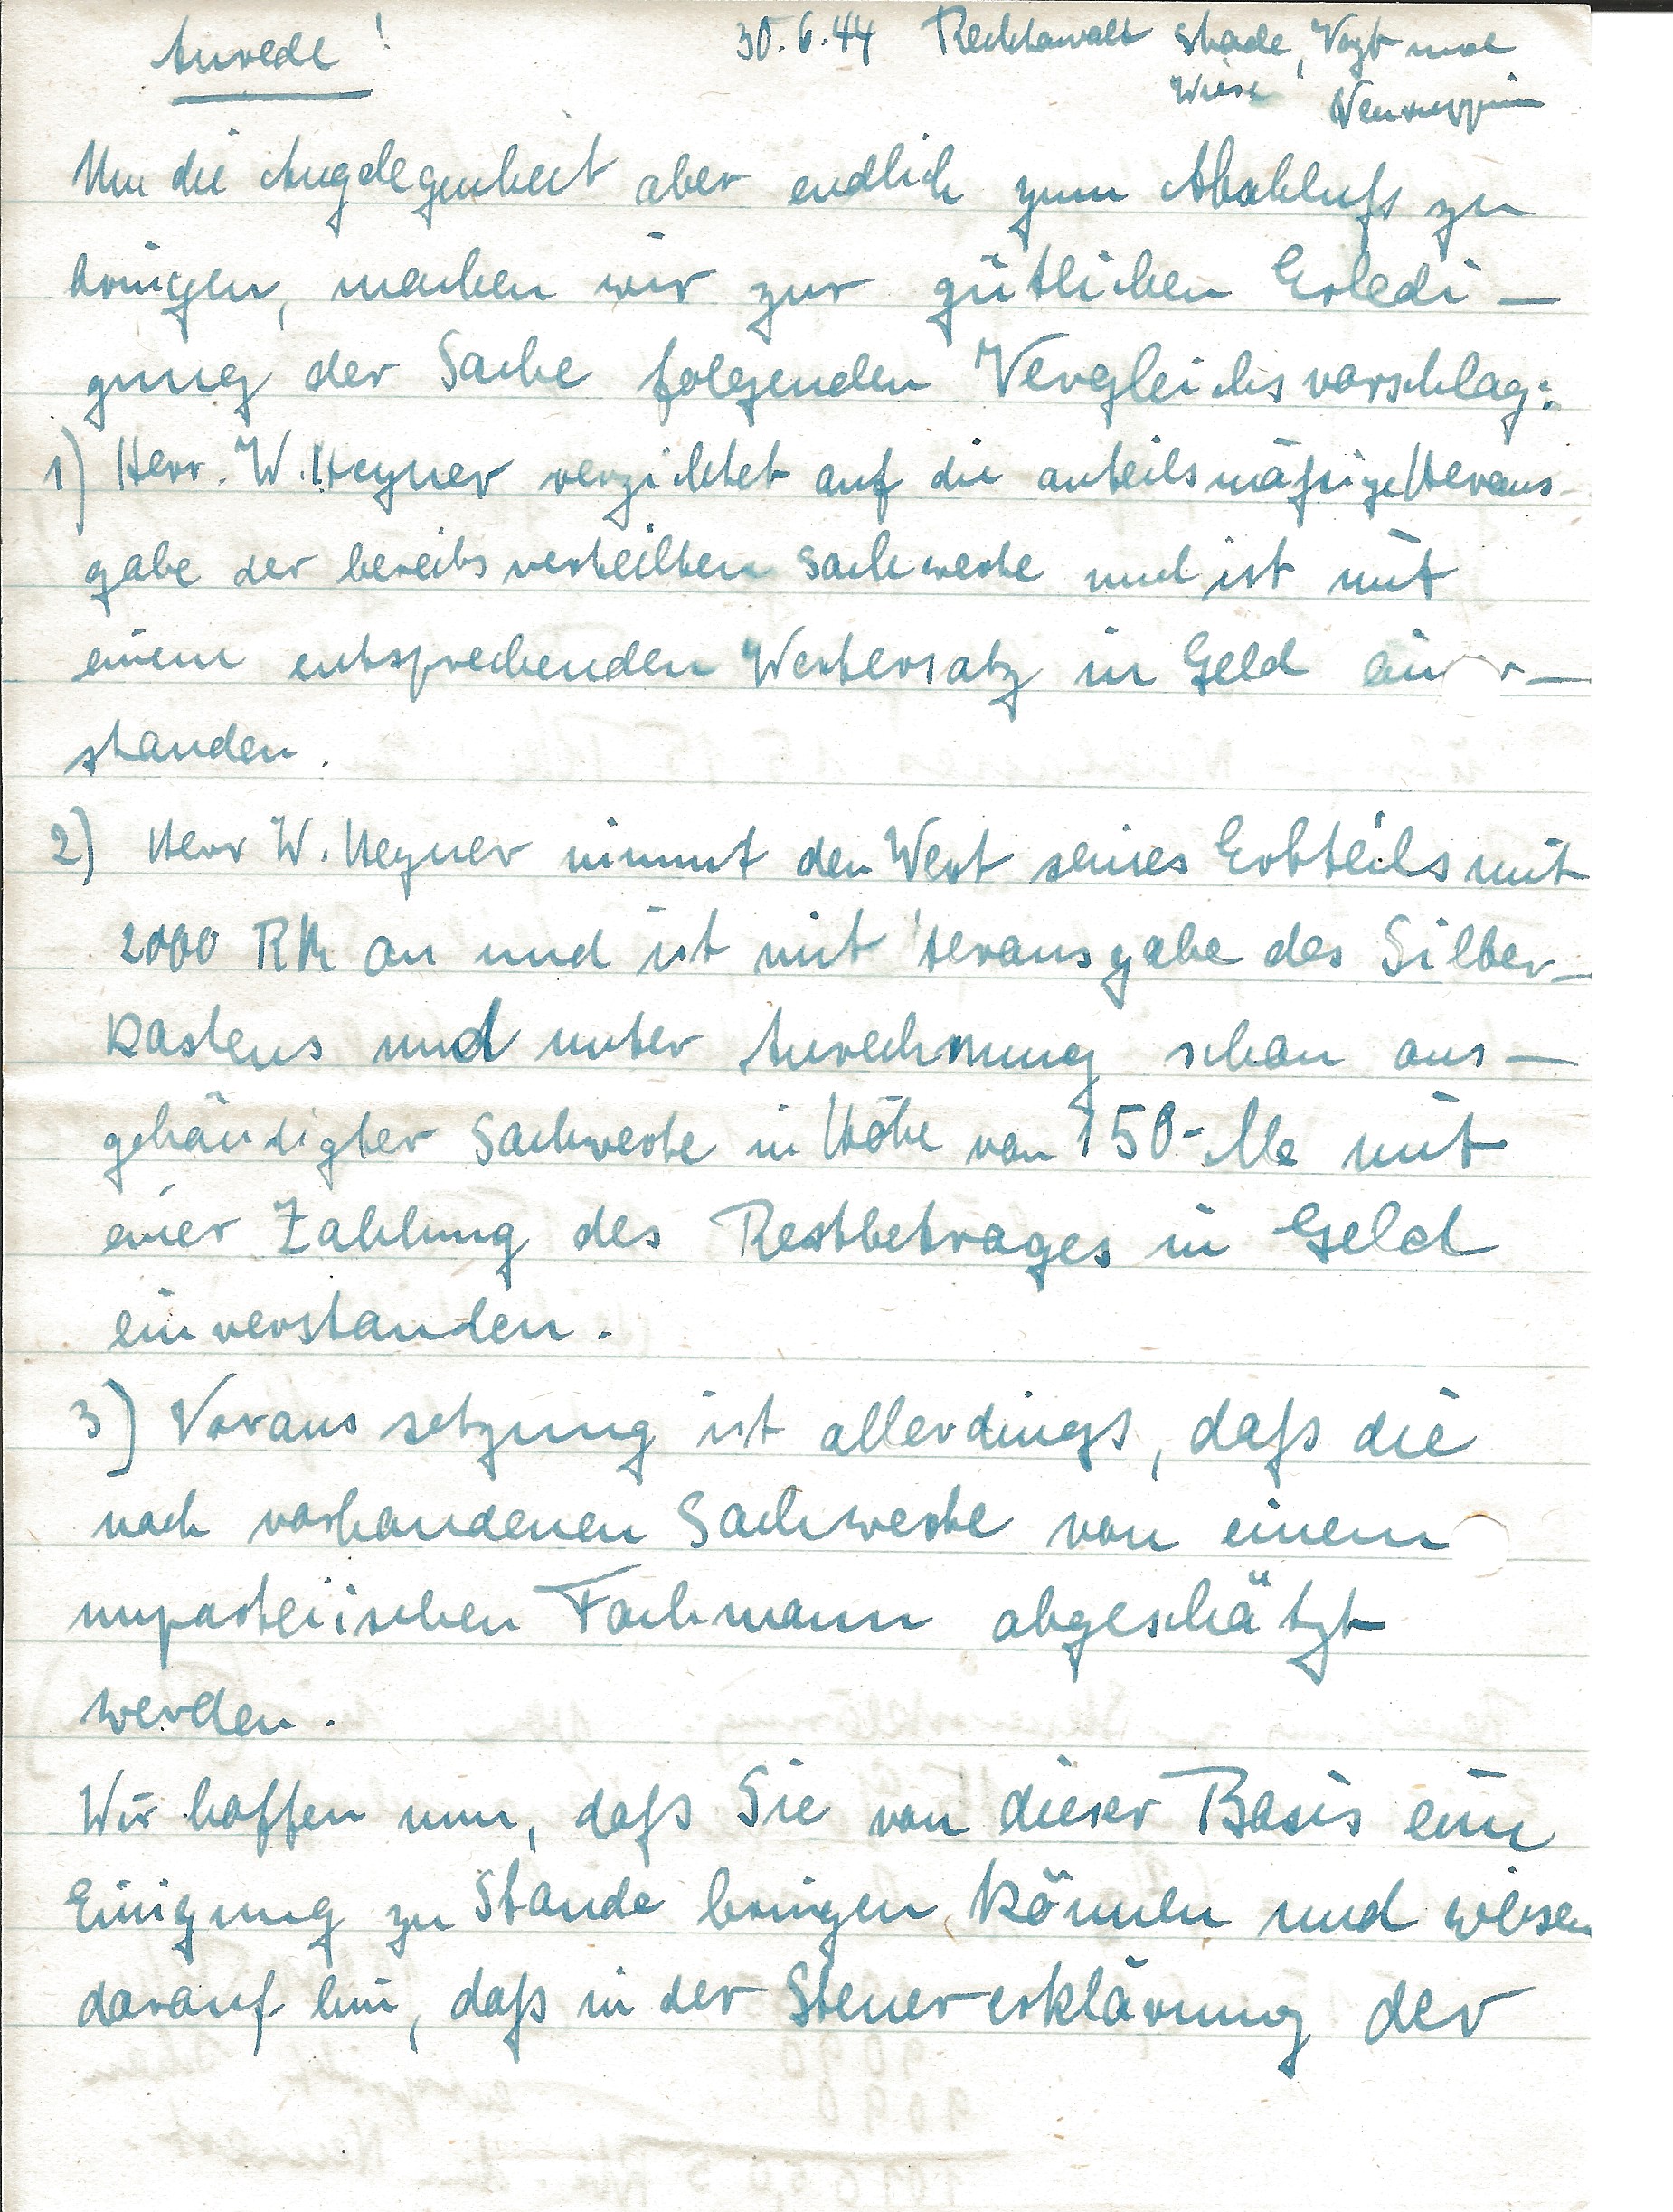 Anrede! 30.6.44 Rechtsanwalt Stade, Vogt und
Wiese Neuruppin
Um die Angelegenheit aber endlich zum Abschluß zu
bringen, machen wir zur gütlichen Erledi-
gung der Sache folgenden Vergleichsvorschlag:
1) Herr. W. Heyner verzichtet auf die anteilsmäßige Heraus-
gabe der bereits verteilten Sachwerte und ist mit
einem entsprechenden Wertersatz in Geld ein r-
standen.
2) Herr W. Heyner nimmt den Wert seines Erbteils mit
2000 RM an und ist mit Herausgabe des Silber-
kastens und unter Anrechnung schon aus-
gehändigter Sachwerte in Höhe von 150.- M mit
einer Zahlung des Restbetrages in Geld
einverstanden.
3) Voraussetzung ist allerdings, daß die
noch vorhandenen Sachwerte von einem
unparteiischen Fachmann abgeschätzt
werden.
Wir hoffen nun, daß Sie von dieser Basis eine
Einigung zu Stande bringen können und wiesen
darauf hin, daß in der Steuererklärung der